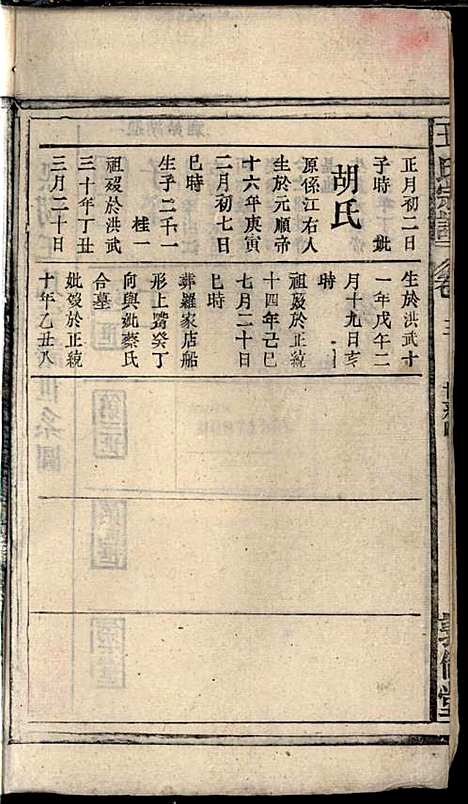 正月初二日
子時　妣
胡氏
原係江右人
生於元順帝
十六年庚寅
二月初七日
巳時
生子二千一
桂一
祖歿於洪武
三十年丁丑
三月二十日
生於洪武十
一年戊午二
月十九日亥
時
祖歿於正統
十四年己巳
七月二十日
巳時
葬羅家店船
形上嘴癸丁
向與妣蔡氏
合墓
妣歿於正統
十年乙丑八
王氏宗譜
卷
敦倫堂